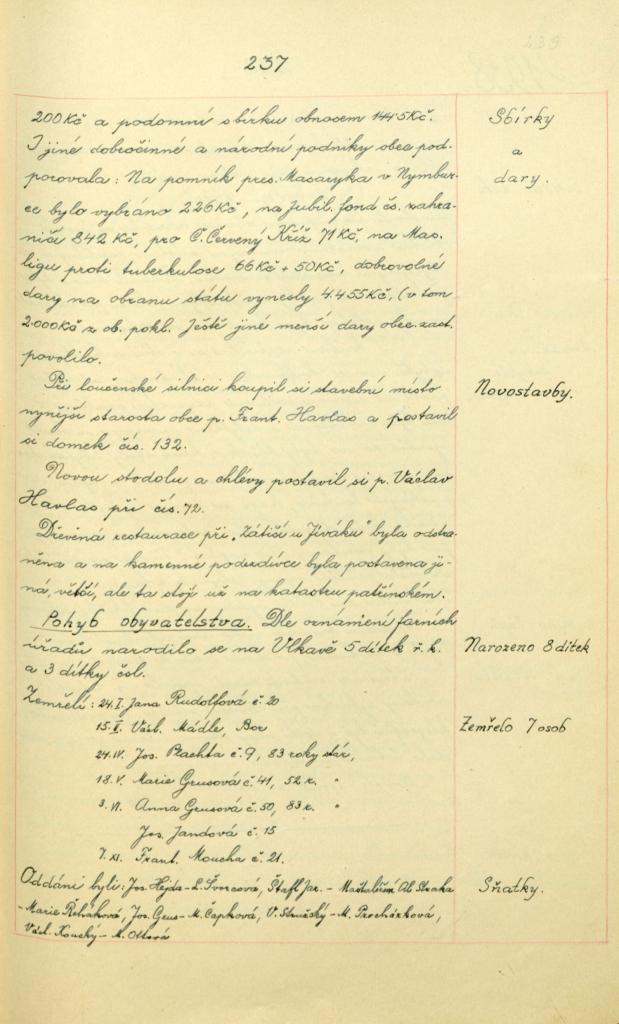 237
200Kč a podomní sbírku obnosem 144.5Kč.
Sbírky
I jiné dobročinné a národní podniky obec pod-
a
porovala: Na pomník pres. Masaryka v Nymbur-
dary.
ce bylo vybráno 226Kč, na Jubil. fond čs. zahra-
ničí 842 Kč, pro Č. Červený Kříž 71Kč, na Mas.
ligu proti tuberkulose 66Kč + 50Kč, dobrovolné
dary na obranu státu vynesly 4.455Kč, (v tom
2.000Kč z ob. pokl. Ještě jiné menší dary obec. zast.
povolilo.
Při loučenské silnici koupil si stavební místo
Novostavby.
nynější starosta obce p. Frant. Havlas a postavil
si domek čís. 132.
Novou stodolu a chlévy postavil si p. Václav
Havlas při čís. 72.
Dřevěná restaurace při „Zátiší u Jíváku" byla odstra-
něna a na kamenné podezdívce byla postavena ji-
ná, větší, ale ta stojí už na katastru patřínském.
Pohyb obyvatelstva. Dle oznámení farních
úřadů narodilo se na Vlkavě 5 dítek ř. k.
Narozeno 8 dítek
a 3 dítky čsl.
Zemřeli: 24.I. Jana Rudolfová č. 20
15.II. Václ. Mádle, Bor
Zemřelo 7 osob
24.IV. Jos. Plachta č. 9, 83 roky stár,
18.V. Marie Grusová č. 41, 52 r. "
3.VI. Anna Grusová č. 50, 83 r. "
Jos. Jandová č. 15
7.XI. Frant. Moucha č. 21.
Oddáni byli: Jos. Hejda - L. Švorcová, Štafl Jar. - Al. Straka
Sňatky.
- Marie Řeháková, Jos. Grus - M. Čapková, V. - M. Procházková,
Václ. Koucký - M. Ottová